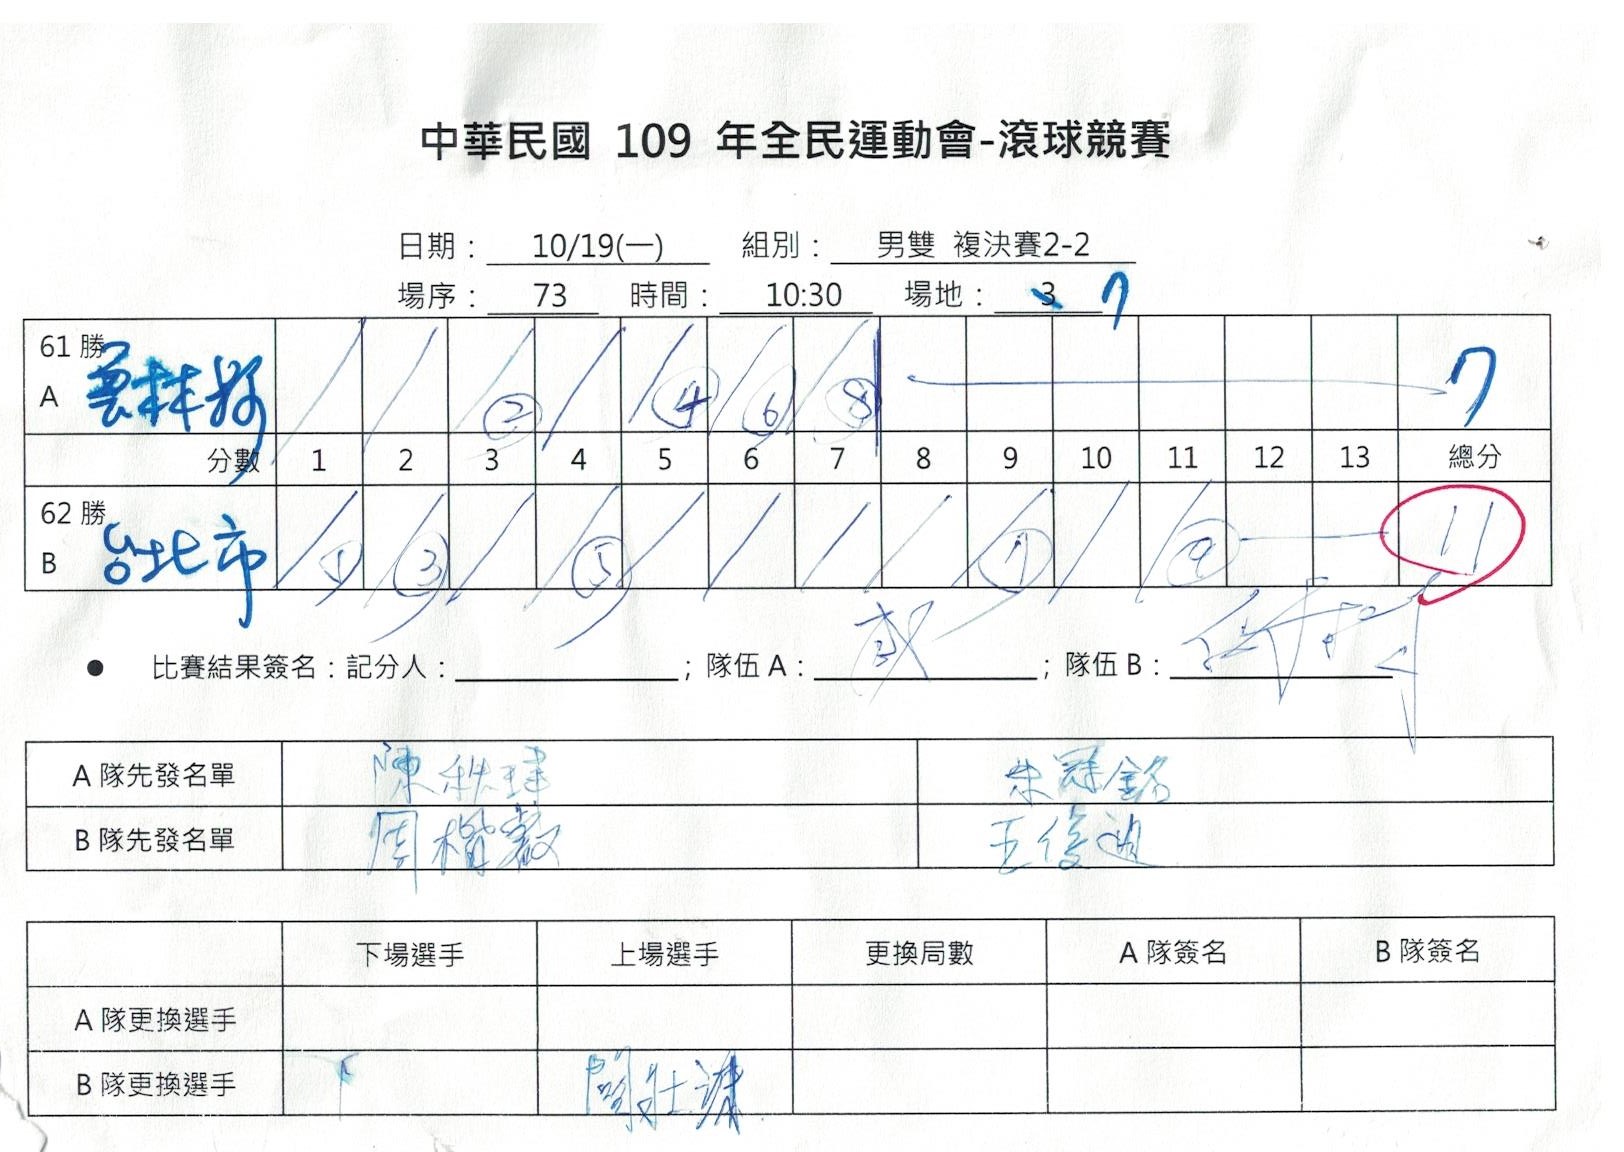 中華民國 109 年全民運動會-滾球競賽
日期： 10/19(一) 組別： 男雙 複決賽2-2
場序： 73 時間： 10:30 場地： 3 7
61 勝
A 雲林縣 ② ④ ⑥ ⑧ 7
分數 1 2 3 4 5 6 7 8 9 10 11 12 13 總分
62 勝
B 台北市 ① ③ ⑤ ⑦ ⑨ 11
● 比賽結果簽名：記分人： ；隊伍 A： ；隊伍 B：
A 隊先發名單 陳 朱冠銘
B 隊先發名單 周 王俊
下場選手 上場選手 更換局數 A 隊簽名 B 隊簽名
A 隊更換選手
B 隊更換選手